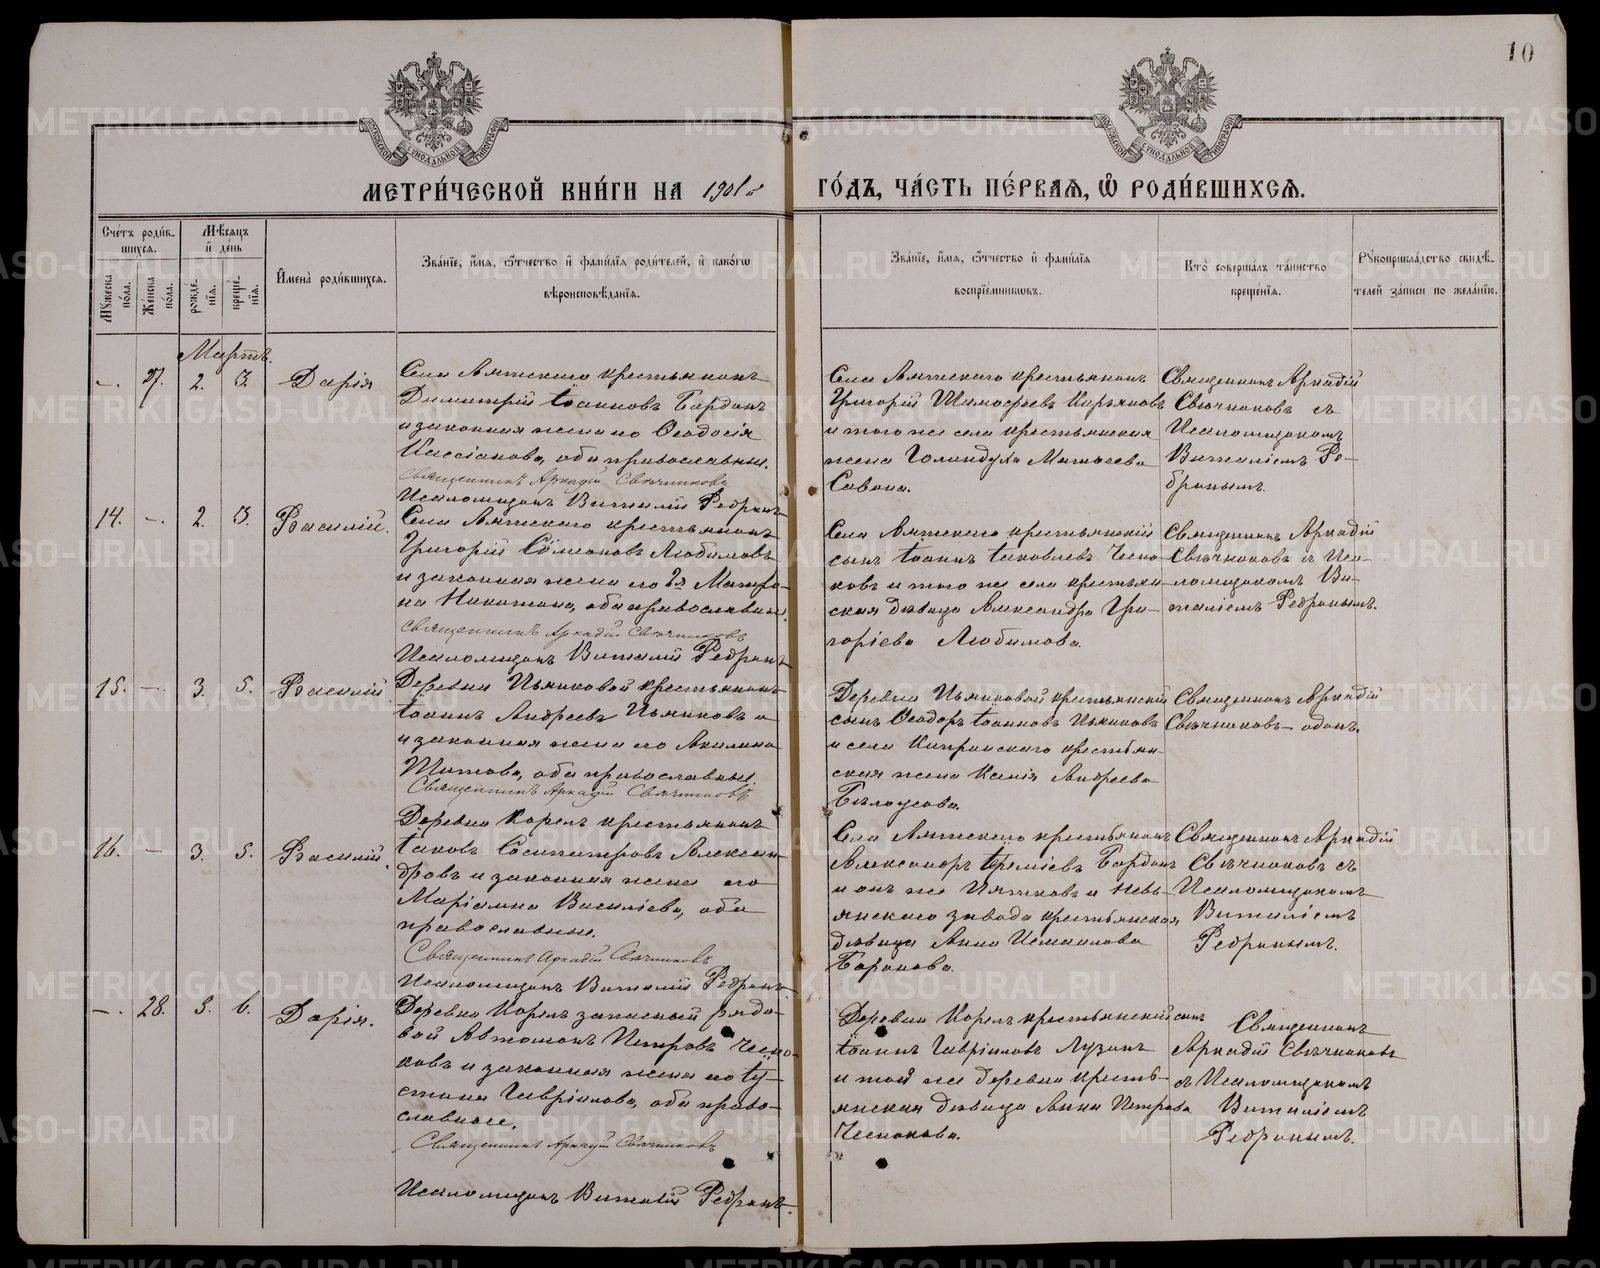 10
МЕТРИ́ЧЕСКОЙ КНИ́ГИ НА 1901 й ГО́ДЪ, ЧА́СТЬ ПЕ́РВАЯ, Ѽ РОДИ́ВШИХСЯ.
Сче́тъ роди́вшихся.
Му́жеска по́ла.
Же́нска по́ла.
Мѣ́сяцъ и де́нь
рожде́нїя.
креще́нїя.
И́мена̀ роди́вшихся.
Зва́нїе, и́мя, ѻ́тчество и фами́лїя роди́телей, и како́гѡ
вѣроисповѣ́данїя.
Зва́нїе, и́мя, ѻ́тчество и фами́лїя
воспрїе́мникѡвъ.
Кто̀ соверша́лъ та́инство
креще́нїя.
Рꙋкоприкла́дство свидѣ́-
телей за́писи по жела́нїю.
Мартъ.
–. 27. 2. 3. Дарія
Села Аятскаго крестьянинъ
Димитрій Іоанновъ Бардинъ
и законная жена его Ѳеодосія
Кассіанова, оба православные.
Священникъ Аркадій Свѣчниковъ
Псаломщикъ Виталій
Села Аятскаго крестьянинъ
Григорій Тимофеевъ
и того же села крестьянская
жена Голиндуха Матѳеева
Савина.
Священникъ Аркадій
Свѣчниковъ съ
Псаломщикомъ
Виталіемъ
14. –. 2. 3. Василій.
Села Аятскаго крестьянинъ
Григорій Симеоновъ Любимовъ
и законная жена его 2я Матро-
на Никитина, оба православные.
Священникъ Аркадій Свѣчниковъ
Псаломщикъ Виталій
Села Аятскаго крестьянскій
сынъ Іоаннъ Іаковлевъ Чесно-
ковъ и того же села крестьян-
ская дѣвица Александра Гри-
горіева Любимова.
Священникъ Аркадій
Свѣчниковъ съ Пса-
ломщикомъ Ви-
таліемъ
15. –. 3. 5. Василій
Деревни Пьянковой крестьянинъ
Іоаннъ Андреевъ Пьянковъ
и законная жена его Акилина
Титова, оба православные.
Священникъ Аркадій Свѣчниковъ
Деревни Пьянковой крестьянскій
сынъ Ѳеодоръ Іоанновъ Пьянковъ
и села Кипринскаго крестьян-
ская жена Ксенія Андреева
Бѣлоусова.
Священникъ Аркадій
Свѣчниковъ – одинъ.
16. – 3. 5. Василій.
Деревни Корелъ крестьянинъ
Іаковъ Сосипатровъ Алексан-
дровъ и законная жена его
Маріамна Василіева, оба
православные.
Священникъ Аркадій Свѣчниковъ
Псаломщикъ Виталій
Села Аятскаго крестьянинъ
Александръ Бардинъ
и онъ же Пятковъ и Невь-
янскаго завода крестьянская
дѣвица Анна Исмаилова
Баранова.
Священникъ Аркадій
Свѣчниковъ съ
Псаломщикомъ
Виталіемъ
–. 28. 3. 6. Дарія.
Деревни Корелъ запасный рядо-
вой Автомонъ Петровъ Чесно-
ковъ и законная жена его Іу-
стина Гавріилова, оба право-
славные.
Священникъ Аркадій Свѣчниковъ
Псаломщикъ Виталій
Деревни Корелъ крестьянскій сынъ
Іоаннъ Гавріиловъ Лузинъ
и той же деревни кресть-
янская дѣвица Анна Петрова
Чеснокова.
Священникъ
Аркадій Свѣчниковъ
съ Псаломщикомъ
Виталіемъ
METRIKI.GASO-URAL.RU